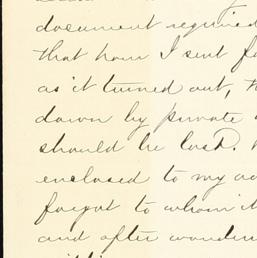 document required
that hour I sent fo
as it turned out, th
down by private
should be lost.
enclosed to my
forgot to whom it
and after wander